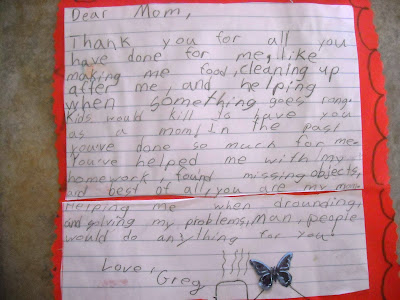 Dear Mom,
Thank you for all you
have done for me, like
making me food, cleaning up
after me, and helping
when something goes rong.
Kids would kill to have you
as a mom. In the past
you've done so much for me.
You've helped me with my
homework, found missing objects,
and best of all, you are my mom.
Helping me when drounding,
and solving my problems, man, people
would do anything for you
Love,
Greg